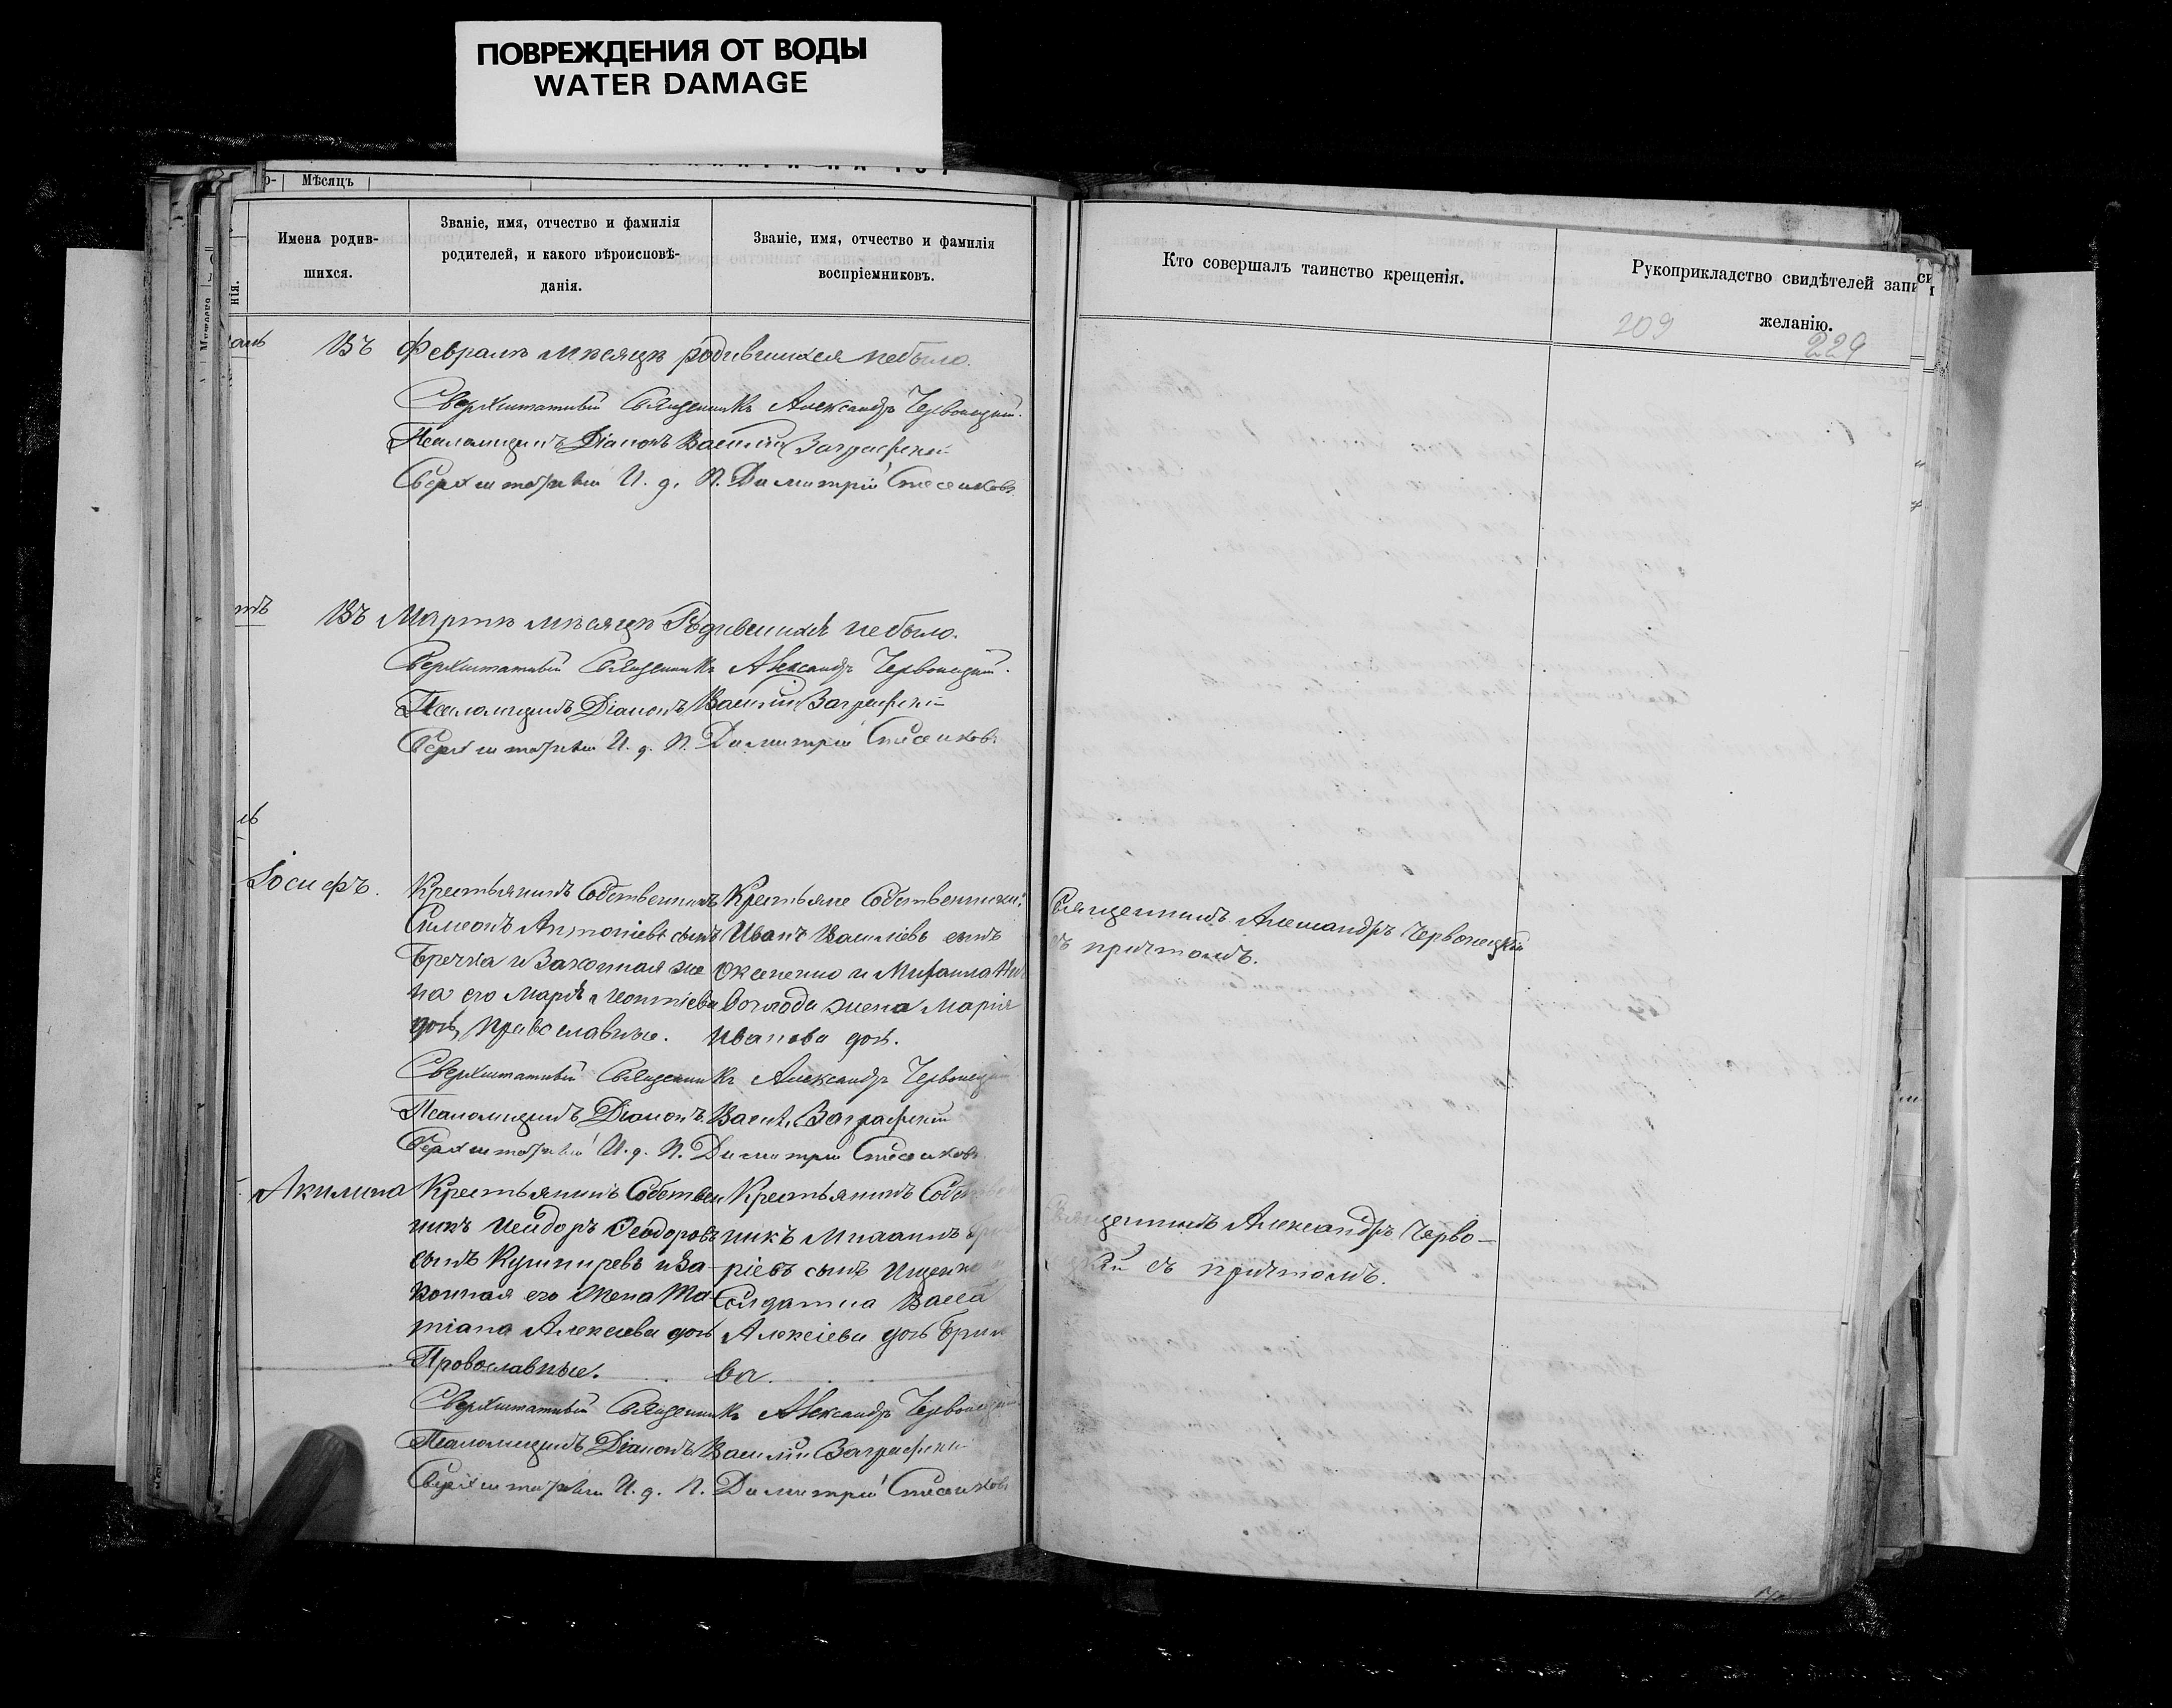 ПОВРЕЖДЕНИЯ ОТ ВОДЫ
WATER DAMAGE
Мѣсяцъ
Имена родив-
шихся.
Званіе, имя, отчество и фамилія
родителей, и какого вѣроисповѣ-
данія.
Званіе, имя, отчество и фамилія
воспріемниковъ.
Кто совершалъ таинство крещенія.
Рукоприкладство свидѣтелей записи
желанію.
209
229
Въ Февралѣ мѣсяцѣ родившихся небыло.
Сверхштатный Священникъ Александръ Червонецкій.
Псаломщикъ Діаконъ Василій Заграфскій
Сверхштатный И. д. П. Димитрій
Въ Мартѣ мѣсяцѣ Родившихся небыло.
Сверхштатный Священникъ Александръ Червонецкій.
Псаломщикъ Діаконъ Василій Заграфскій
Сверхштатный И. д. П. Димитрій
Іосифъ.
Крестьянинъ Собственникъ
Симеонъ Антоніевъ сынъ
Бречка и Законная же
на его Марѳа Леонтіева
дочь, Православные.
Крестьяне Собственники:
Иванъ Василіевъ сынъ
Оксененко и Михаила
жена Марія
Иванова дочь.
Священникъ Александръ Червонецкій
съ причтомъ.
Сверхштатный Священникъ Александръ Червонецкій
Псаломщикъ Діаконъ Василій Заграфскій
Сверхштатный И. д. П. Димитрій
Акилина
Крестьянинъ Собствен
никъ Исидоръ Ѳеодоровъ
сынъ Кушниревъ и За-
конная его жена Та
тіана Алексіева дочь
Православные.
Крестьянинъ Собствен
никъ
ріевъ сынъ Ищенко
Солдатка Васса
Алексіева дочь
ва.
Священникъ Александръ Черво-
цкій съ причтомъ.
Сверхштатный Священникъ Александръ Червонецкій
Псаломщикъ Діаконъ Василій Заграфскій
Сверхштатный И. д. П. Димитрій